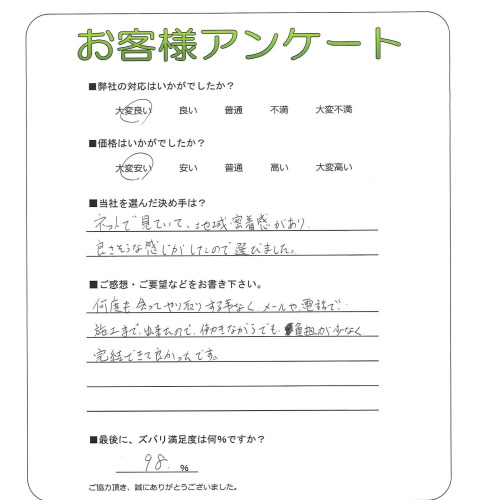 お客様アンケート
■弊社の対応はいかがでしたか？
大変良い 良い 普通 不満 大変不満
■価格はいかがでしたか？
大変安い 安い 普通 高い 大変高い
■当社を選んだ決め手は？
ネットで見ていて、地域密着感があり、
良さそうな感じがしたので選びました。
■ご感想・ご要望などをお書き下さい。
何度も会ってやり取りする事なく、メールや電話で
施工まで出来たので、働きながらでも負担が少なく
完結できて良かったです。
■最後に、ズバリ満足度は何％ですか？
98. %
ご協力頂き、誠にありがとうございました。